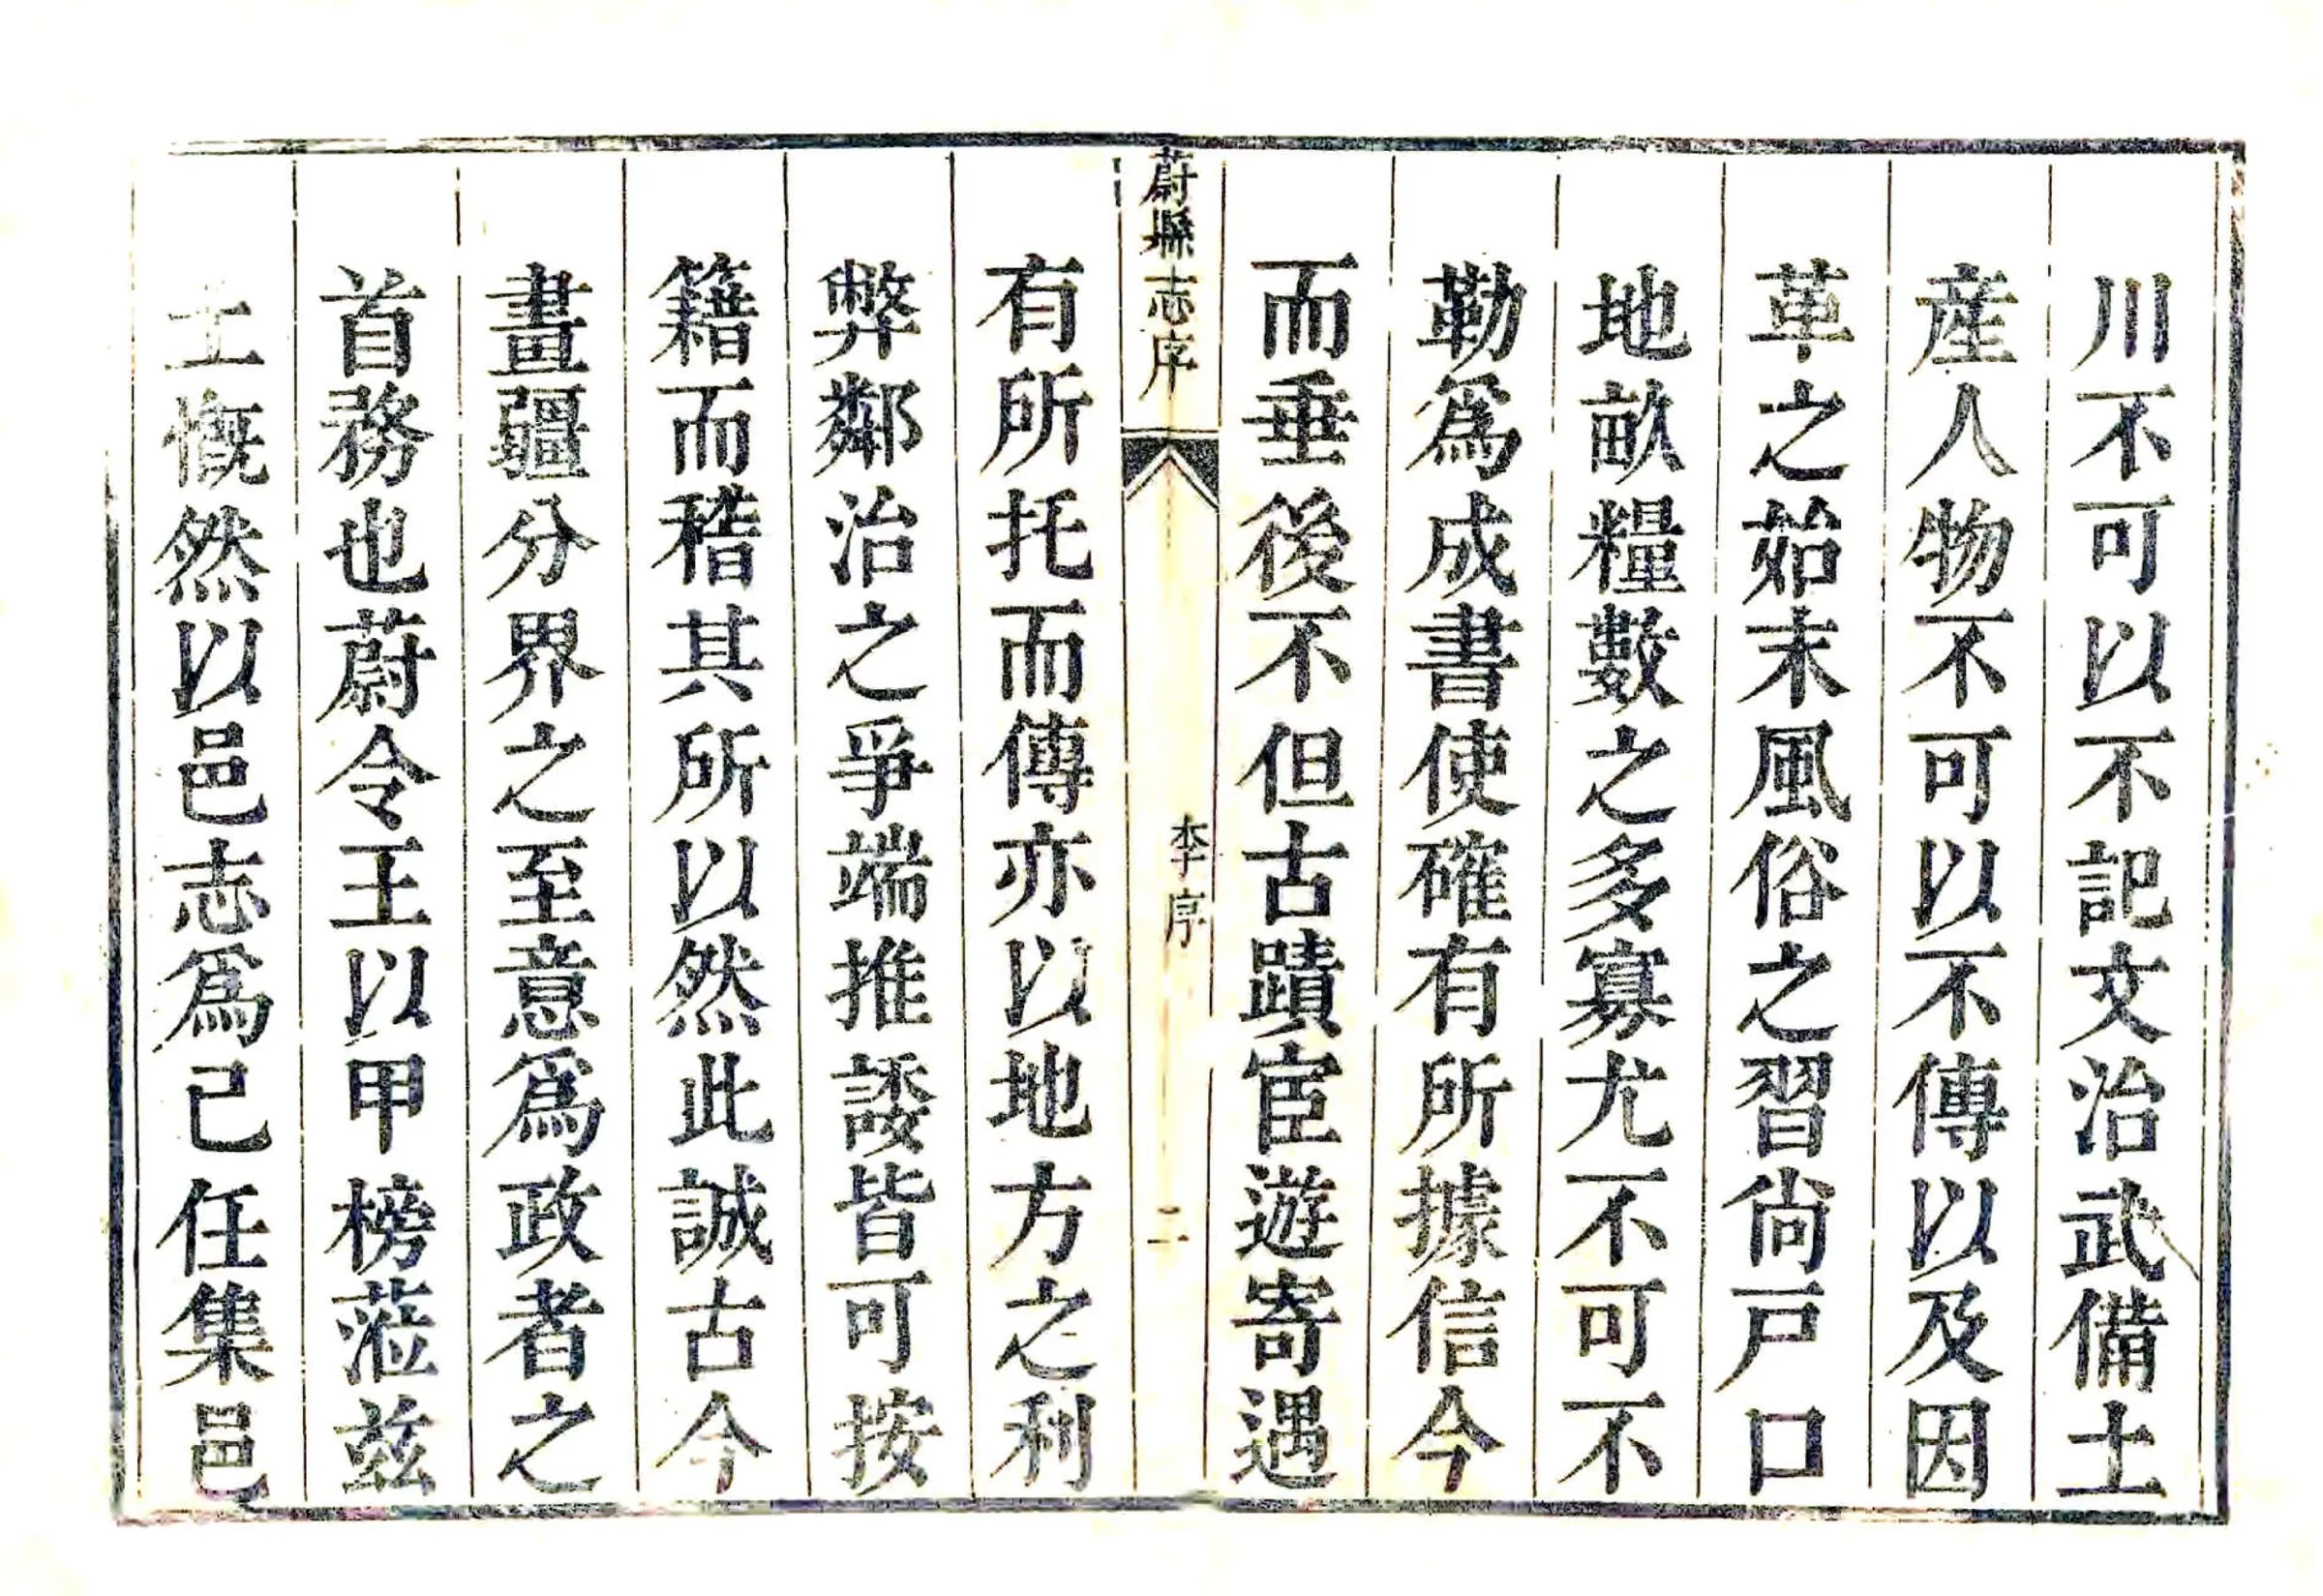 川不可以不記文治武備土
産人物不可以不傳以及因
革之始末風俗之習尚戸口
地畝糧數之多寡尤不可不
勒爲成書使確有所據信今
而垂後不但古蹟宦遊寄遇
蔚縣志序
李序
二
有所托而傳亦以地方之利
弊鄰治之爭端推諉皆可按
籍而稽其所以然此誠古今
畫疆分界之至意爲政者之
首務也蔚令王以甲榜蒞兹
土慨然以邑志爲己任集邑